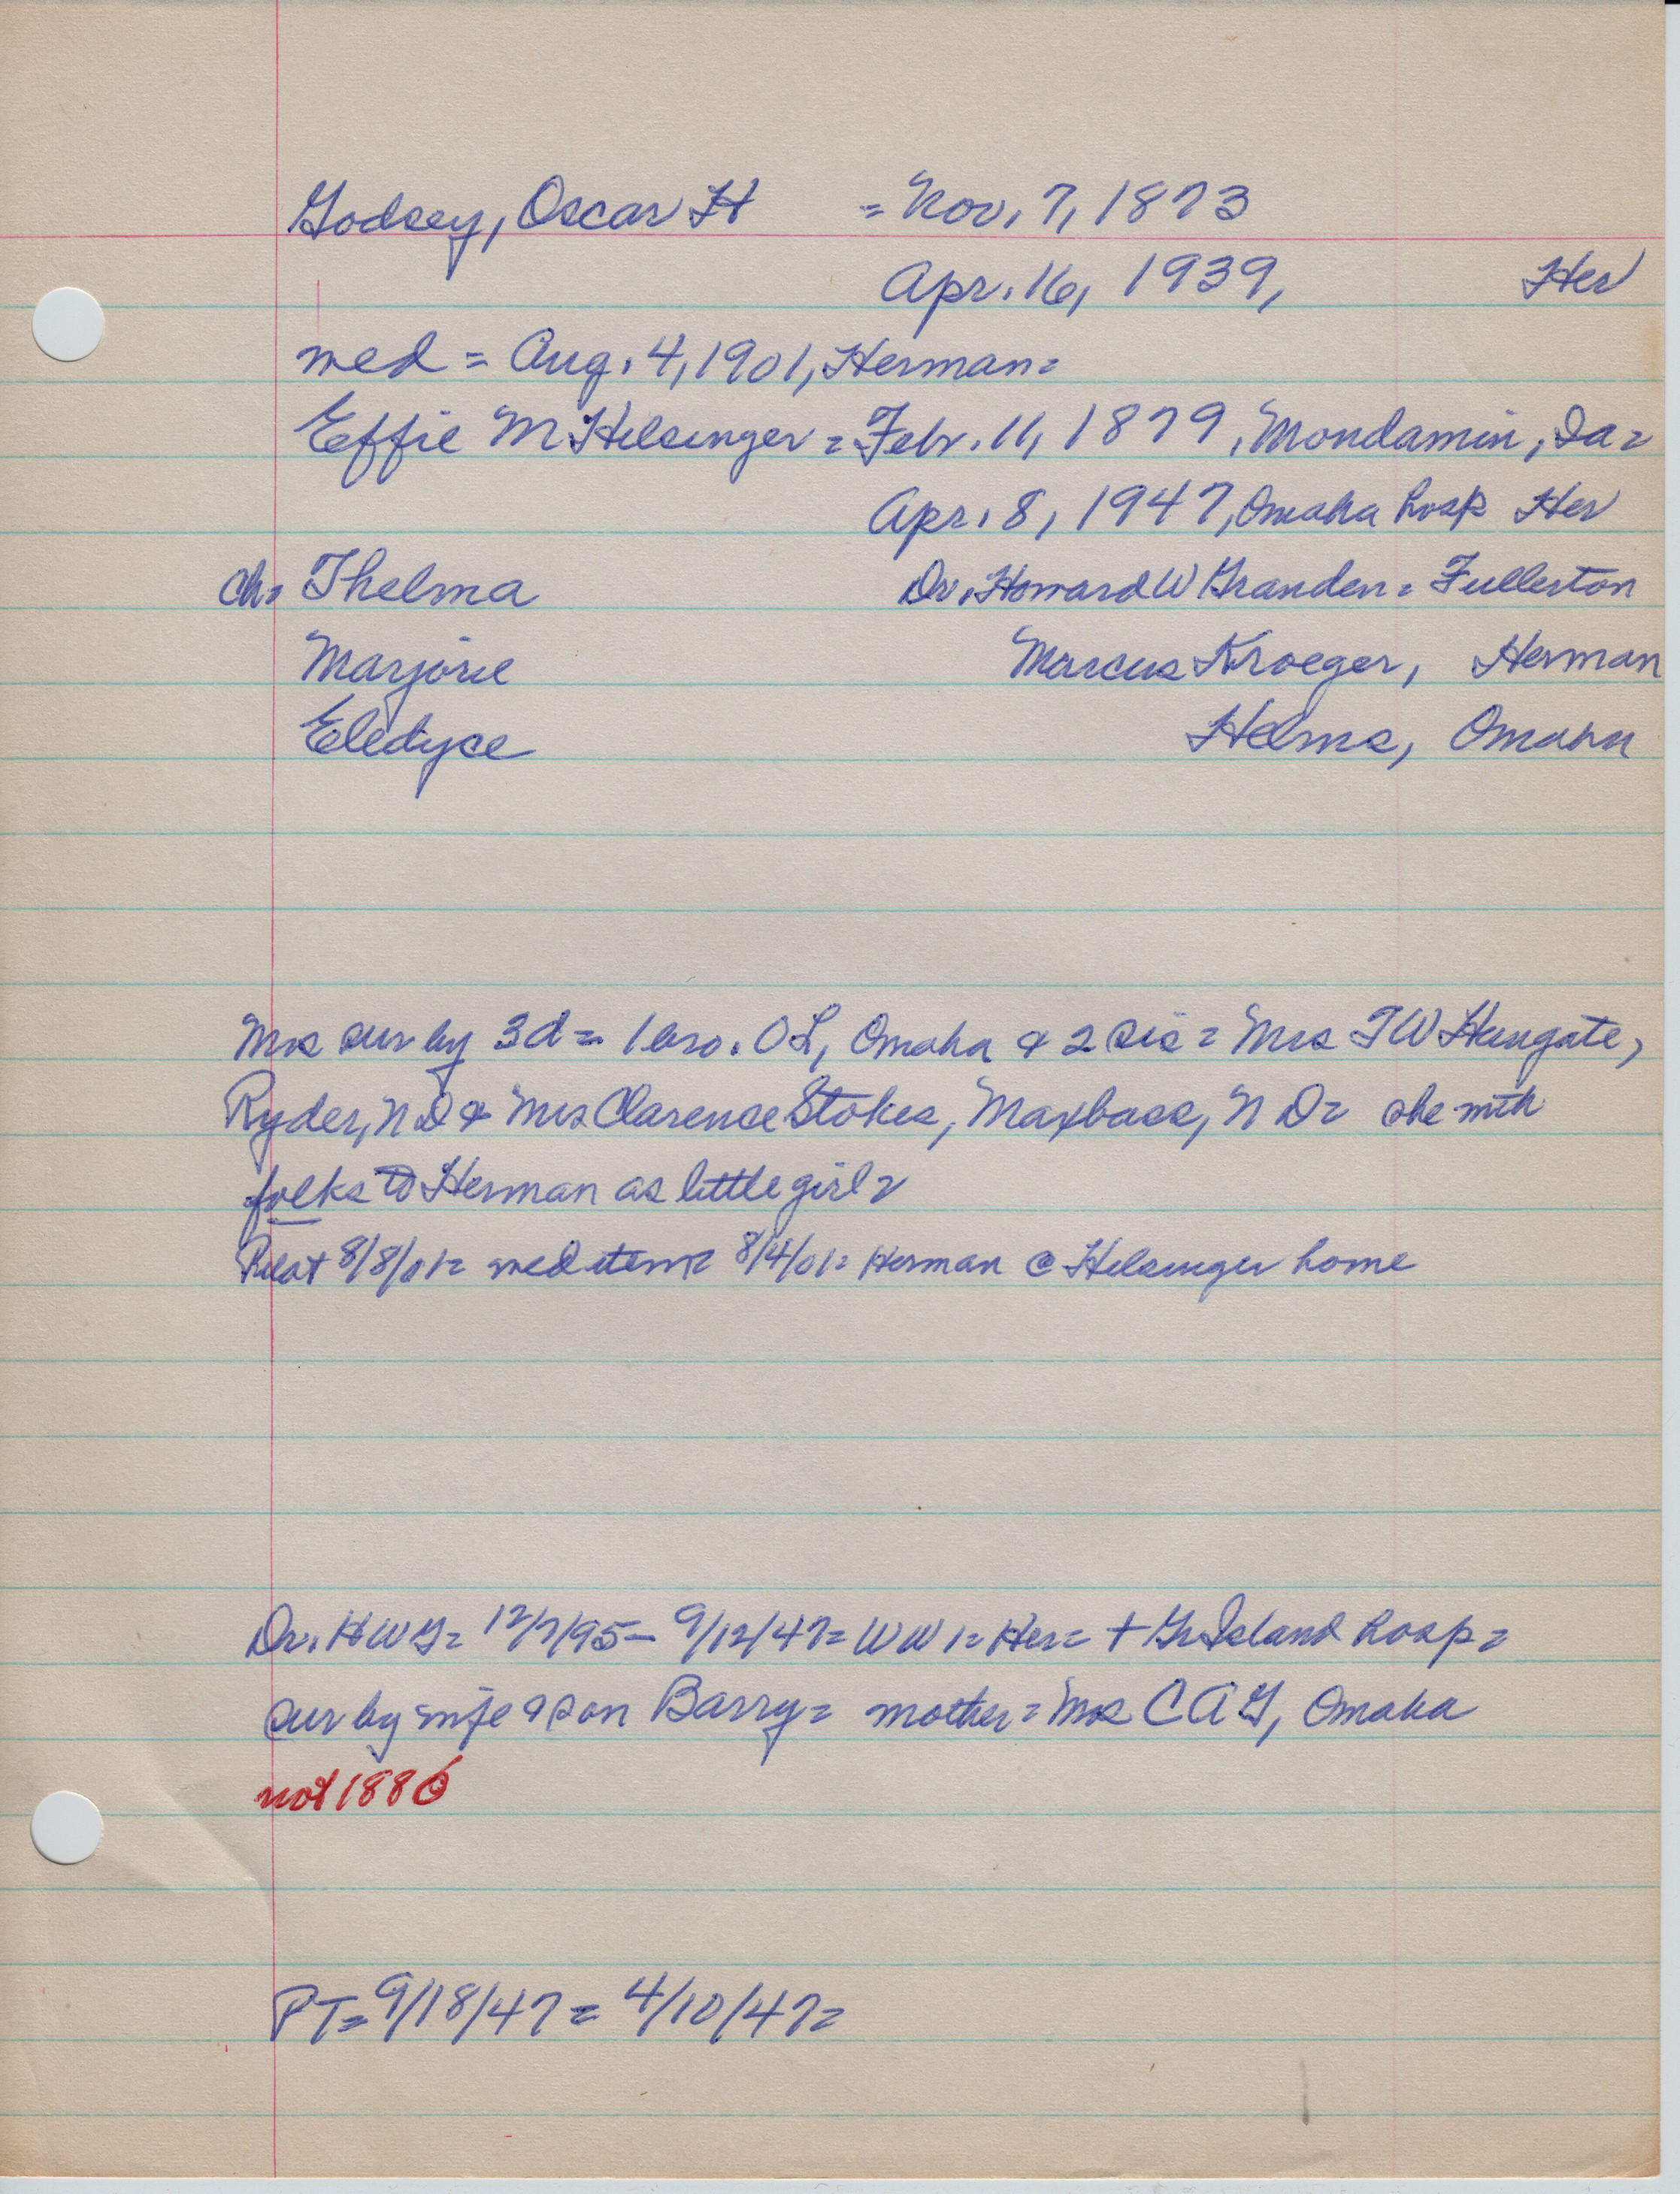 Godsey, Oscar H = Nov. 7, 1873
Apr. 16, 1939, Her
wed = Aug. 4, 1901, Herman =
Effie M Helsinger = Febr. 11, 1879, Mondamin, Ia =
Apr. 8, 1947, Omaha hosp Her
ch = Thelma Dr. Howard W Granden = Fullerton
Marjorie Marcus Kroeger, Herman
Eledyce Helms, Omaha
Mrs sur by 3d = 1 bro. O L, Omaha & 2 sis = Mrs T W Hungate,
Ryder, N D & Mrs Clarence Stokes, Maxbass, N D = she with
folks to Herman as little girl =
Pilot 8/8/01 = wed item = 8/4/01 = Herman @ Helsinger home
Dr. H W G = 12/7/95 - 9/12/47 = WW 1 = Her = + Gr Island hosp =
sur by wife & son Barry = mother = Mrs C A G, Omaha
not 1886
PT = 9/18/47 = 4/10/47 =